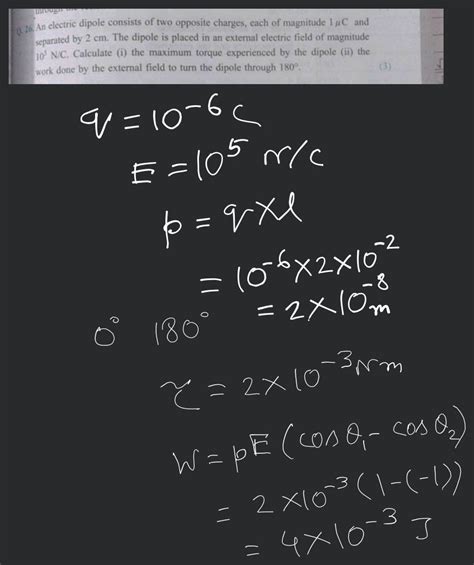 Q. 26. An electric dipole consists of two opposite charges, each of magnitude 1 μC and
separated by 2 cm. The dipole is placed in an external electric field of magnitude
10⁵ N/C. Calculate (i) the maximum torque experienced by the dipole (ii) the
work done by the external field to turn the dipole through 180°. (3)
q = 10⁻⁶ C
E = 10⁵ N/C
p = q × l
= 10⁻⁶ × 2 × 10⁻²
= 2 × 10⁻⁸ m
0° 180°
τ = 2 × 10⁻³ Nm
W = pE (cos θ₁ - cos θ₂)
= 2 × 10⁻³ (1 - (-1))
= 4 × 10⁻³ J